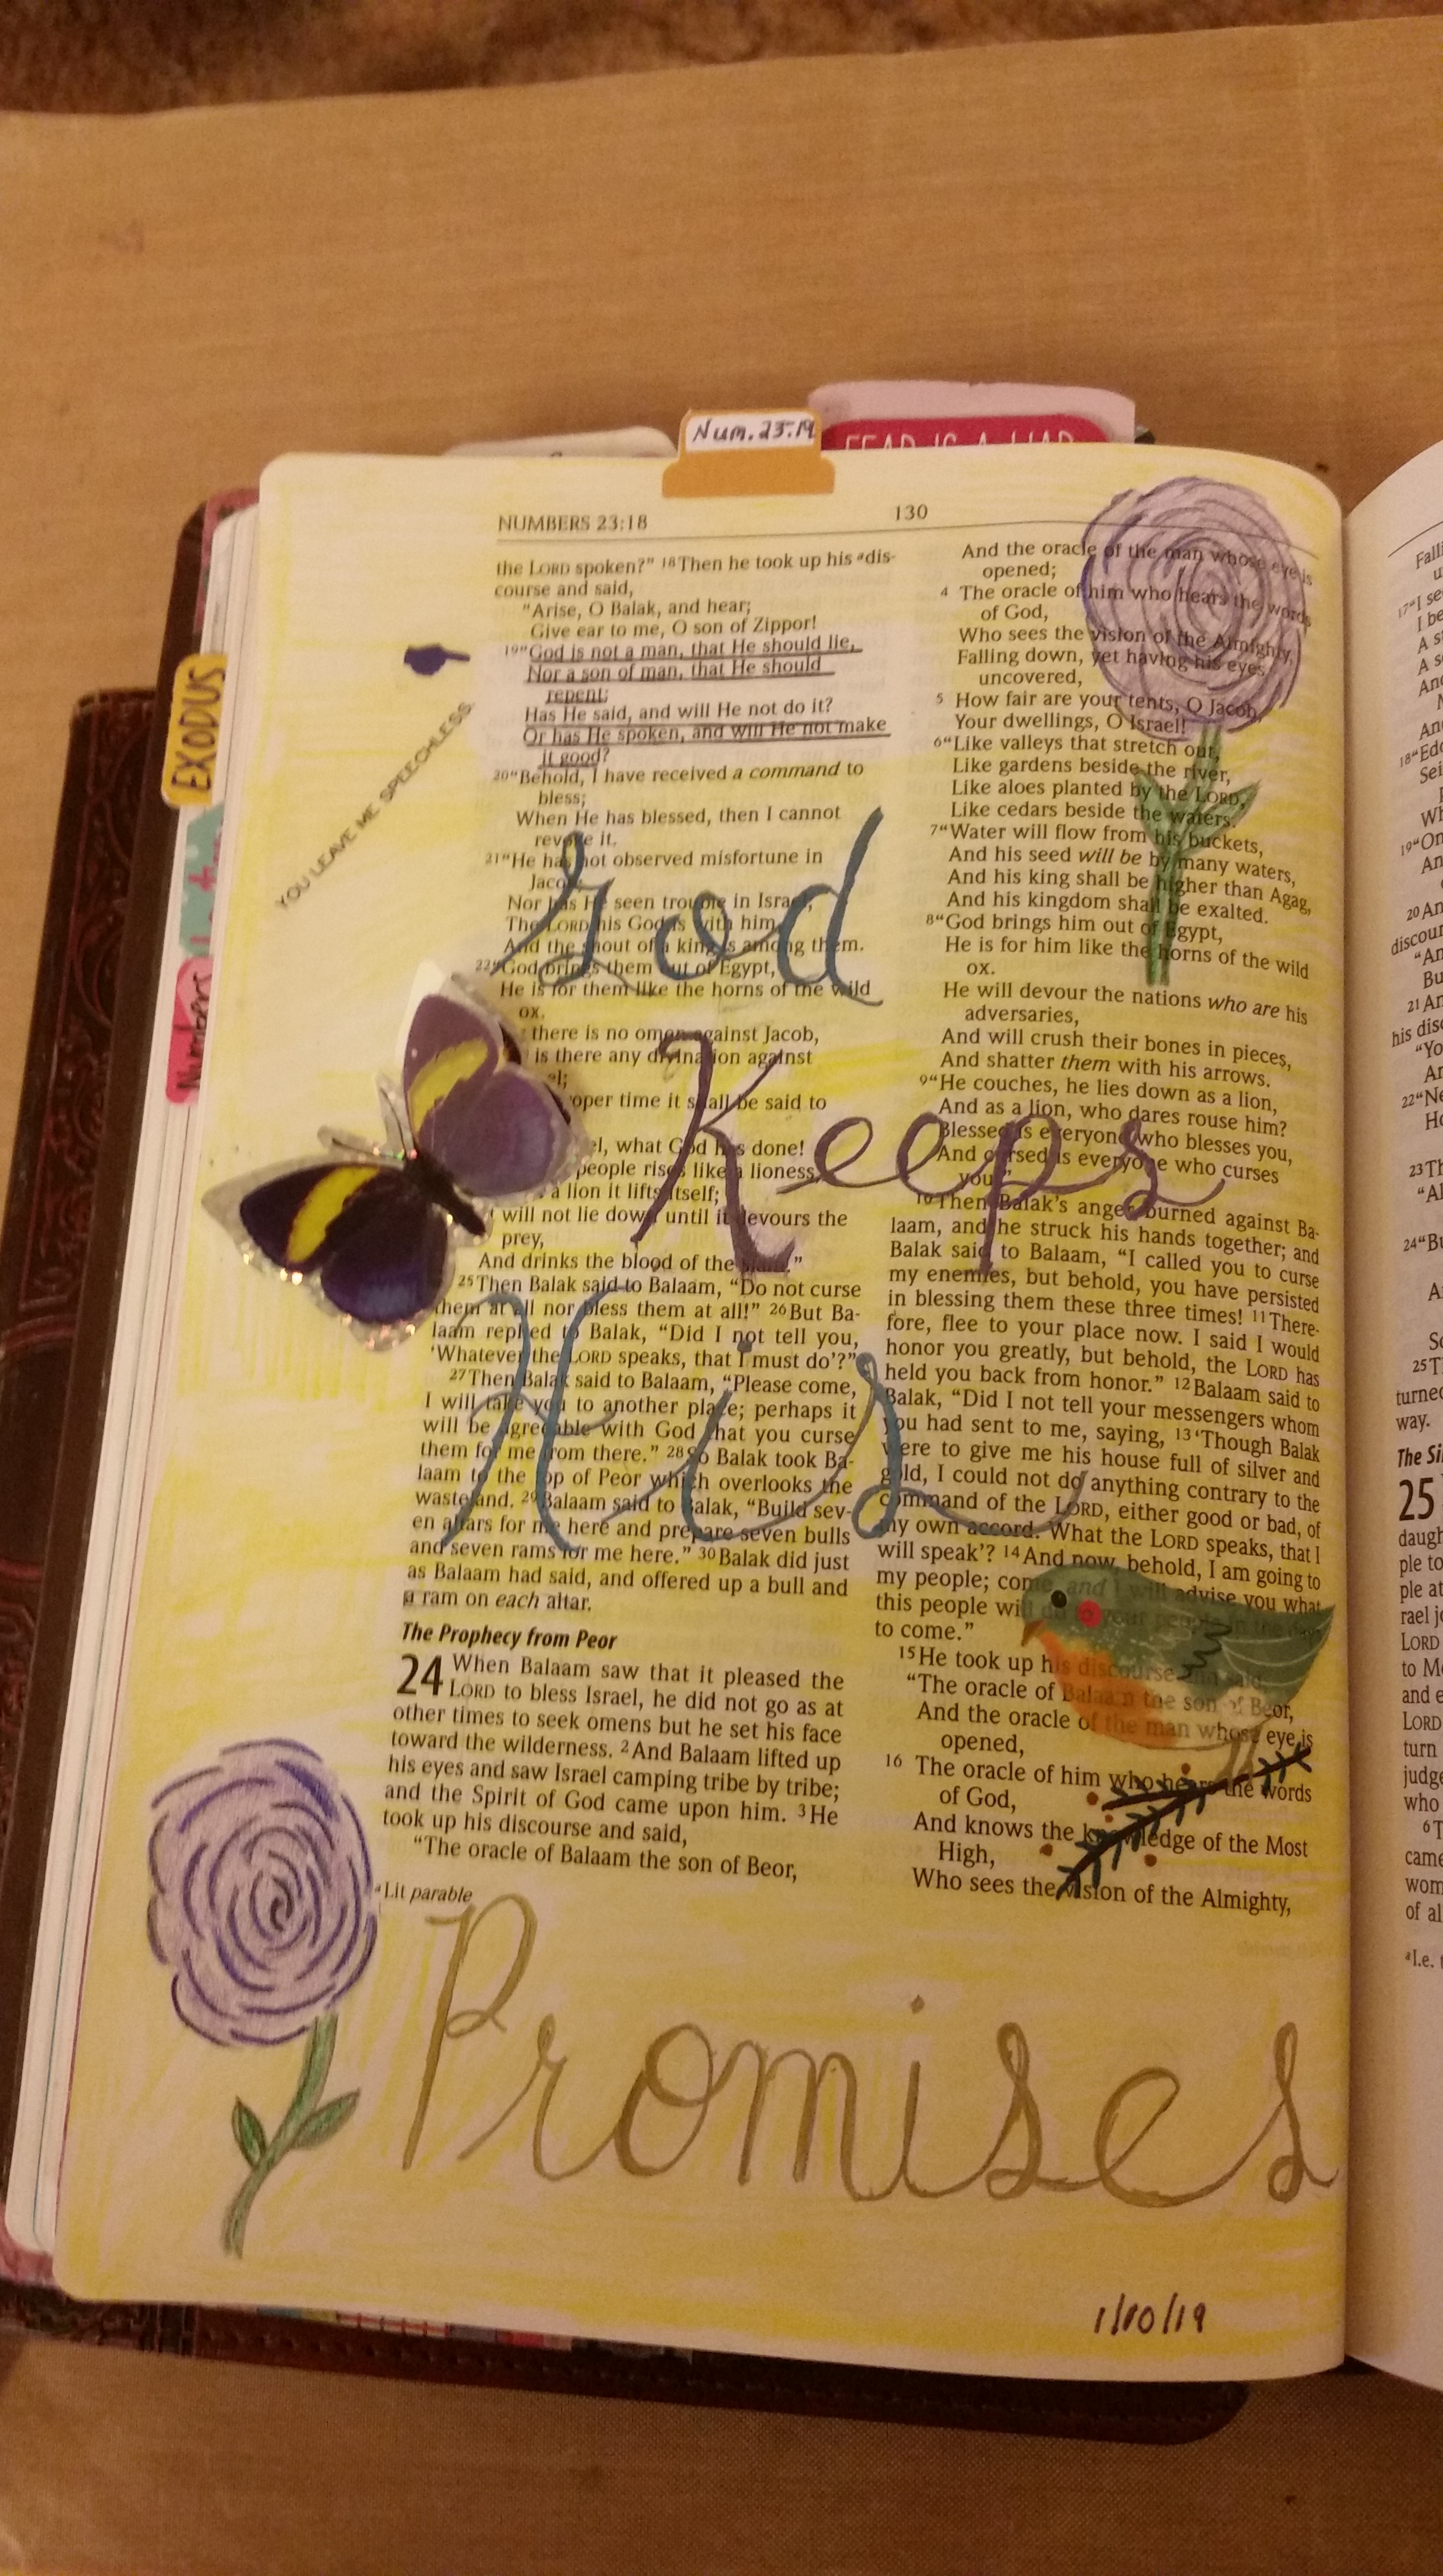 Num.23:19
FEAR IS A LIAR
EXODUS
Numbers
NUMBERS 23:18
130
the LORD spoken?" 18Then he took up his adis-
course and said,
"Arise, O Balak, and hear;
Give ear to me, O son of Zippor!
19"God is not a man, that He should lie,
Nor a son of man, that He should
repent;
Has He said, and will He not do it?
Or has He spoken, and will He not make
it good?
20"Behold, I have received a command to
bless;
When He has blessed, then I cannot
revoke it.
21"He has not observed misfortune in
Jacob;
Nor has He seen trouble in Israel;
The LORD his God is with him,
And the shout of a king is among them.
22"God brings them out of Egypt,
He is for them like the horns of the wild
ox.
there is no omen against Jacob,
is there any divination against
el;
oper time it shall be said to
el, what God has done!
people rises like a lioness,
a lion it lifts itself;
will not lie down until it devours the
prey,
And drinks the blood of the slain."
25Then Balak said to Balaam, "Do not curse
them at all nor bless them at all!" 26But Ba-
laam replied to Balak, "Did I not tell you,
'Whatever the LORD speaks, that I must do'?"
27Then Balak said to Balaam, "Please come,
I will take you to another place; perhaps it
will be agreeable with God that you curse
them for me from there." 28So Balak took Ba-
laam to the top of Peor which overlooks the
wasteland. 29Balaam said to Balak, "Build sev-
en altars for me here and prepare seven bulls
and seven rams for me here." 30Balak did just
as Balaam had said, and offered up a bull and
a ram on each altar.
The Prophecy from Peor
24 When Balaam saw that it pleased the
LORD to bless Israel, he did not go as at
other times to seek omens but he set his face
toward the wilderness. 2And Balaam lifted up
his eyes and saw Israel camping tribe by tribe;
and the Spirit of God came upon him. 3He
took up his discourse and said,
"The oracle of Balaam the son of Beor,
aLit parable
And the oracle of the man whose eye is
opened;
4 The oracle of him who hears the words
of God,
Who sees the vision of the Almighty,
Falling down, yet having his eyes
uncovered,
5 How fair are your tents, O Jacob,
Your dwellings, O Israel!
6"Like valleys that stretch out,
Like gardens beside the river,
Like aloes planted by the LORD,
Like cedars beside the waters.
7"Water will flow from his buckets,
And his seed will be by many waters,
And his king shall be higher than Agag,
And his kingdom shall be exalted.
8"God brings him out of Egypt,
He is for him like the horns of the wild
ox.
He will devour the nations who are his
adversaries,
And will crush their bones in pieces,
And shatter them with his arrows.
9"He couches, he lies down as a lion,
And as a lion, who dares rouse him?
Blessed is everyone who blesses you,
And cursed is everyone who curses
you."
10Then Balak's anger burned against Ba-
laam, and he struck his hands together; and
Balak said to Balaam, "I called you to curse
my enemies, but behold, you have persisted
in blessing them these three times! 11There-
fore, flee to your place now. I said I would
honor you greatly, but behold, the LORD has
held you back from honor." 12Balaam said to
Balak, "Did I not tell your messengers whom
you had sent to me, saying, 13'Though Balak
were to give me his house full of silver and
gold, I could not do anything contrary to the
command of the LORD, either good or bad, of
my own accord. What the LORD speaks, that I
will speak'? 14And now, behold, I am going to
my people; come, and I will advise you what
this people will do to your people in the days
to come."
15He took up his discourse and said,
"The oracle of Balaam the son of Beor,
And the oracle of the man whose eye is
opened,
16 The oracle of him who hears the words
of God,
And knows the knowledge of the Most
High,
Who sees the vision of the Almighty,
YOU LEAVE ME SPEECHLESS
God
Keeps
His
Promises
1/10/19
The Si
25